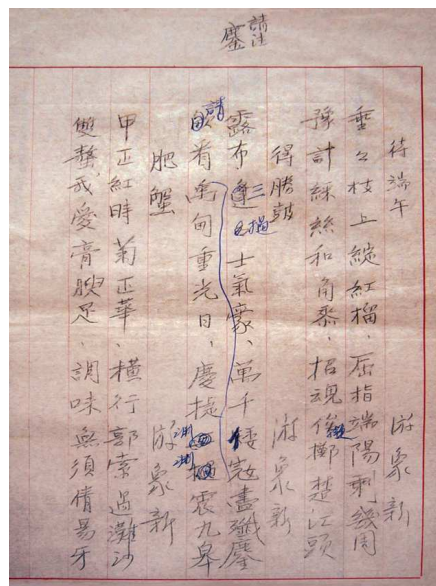 請注
鏖
待端午　游象新
重々枝上綻紅榴、屈指端陽剩幾周
豫計綵絲和角黍、招魂後擲楚江頭
得勝鼓　游象新
露布三士氣豪、萬千倭寇盡殲鏖
請看禹甸重光日、慶捷淵淵震九皐
肥蟹　游象新
甲正紅時菊正華、橫行郭索過灘沙
雙螯我愛膏腴足、調味無須倩易牙